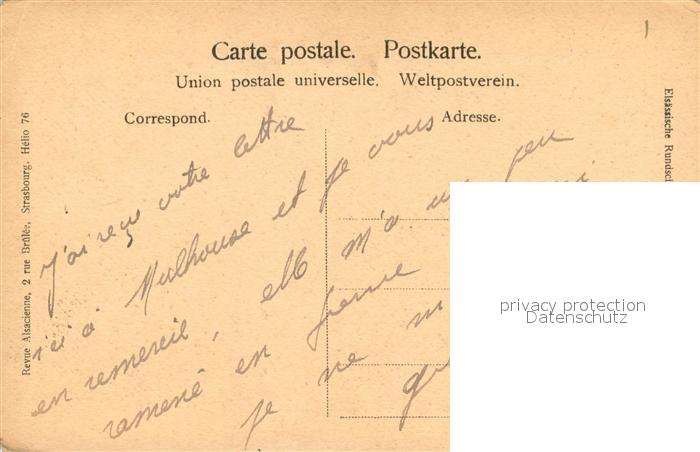 Carte postale. Postkarte.
Union postale universelle. Weltpostverein.
Correspond.
Adresse.
J'ai reçu votre lettre
ici à Mulhouse et je vous
en remercie, elle m'a un peu
ramené en
je ne
Revue Alsacienne, 2 rue Brûlée, Strasbourg. Hélio 76
Elsässische Rundsch
privacy protection
Datenschutz